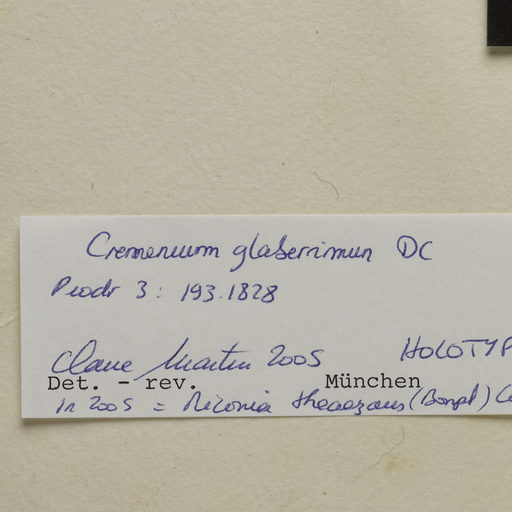 Cremanium glaberrimum DC
Prodr 3: 193. 1828
Claue Martin 2005 HOLOTYP
Det. - rev. München
in 2005 = Miconia theaezans (Bonpl) Co